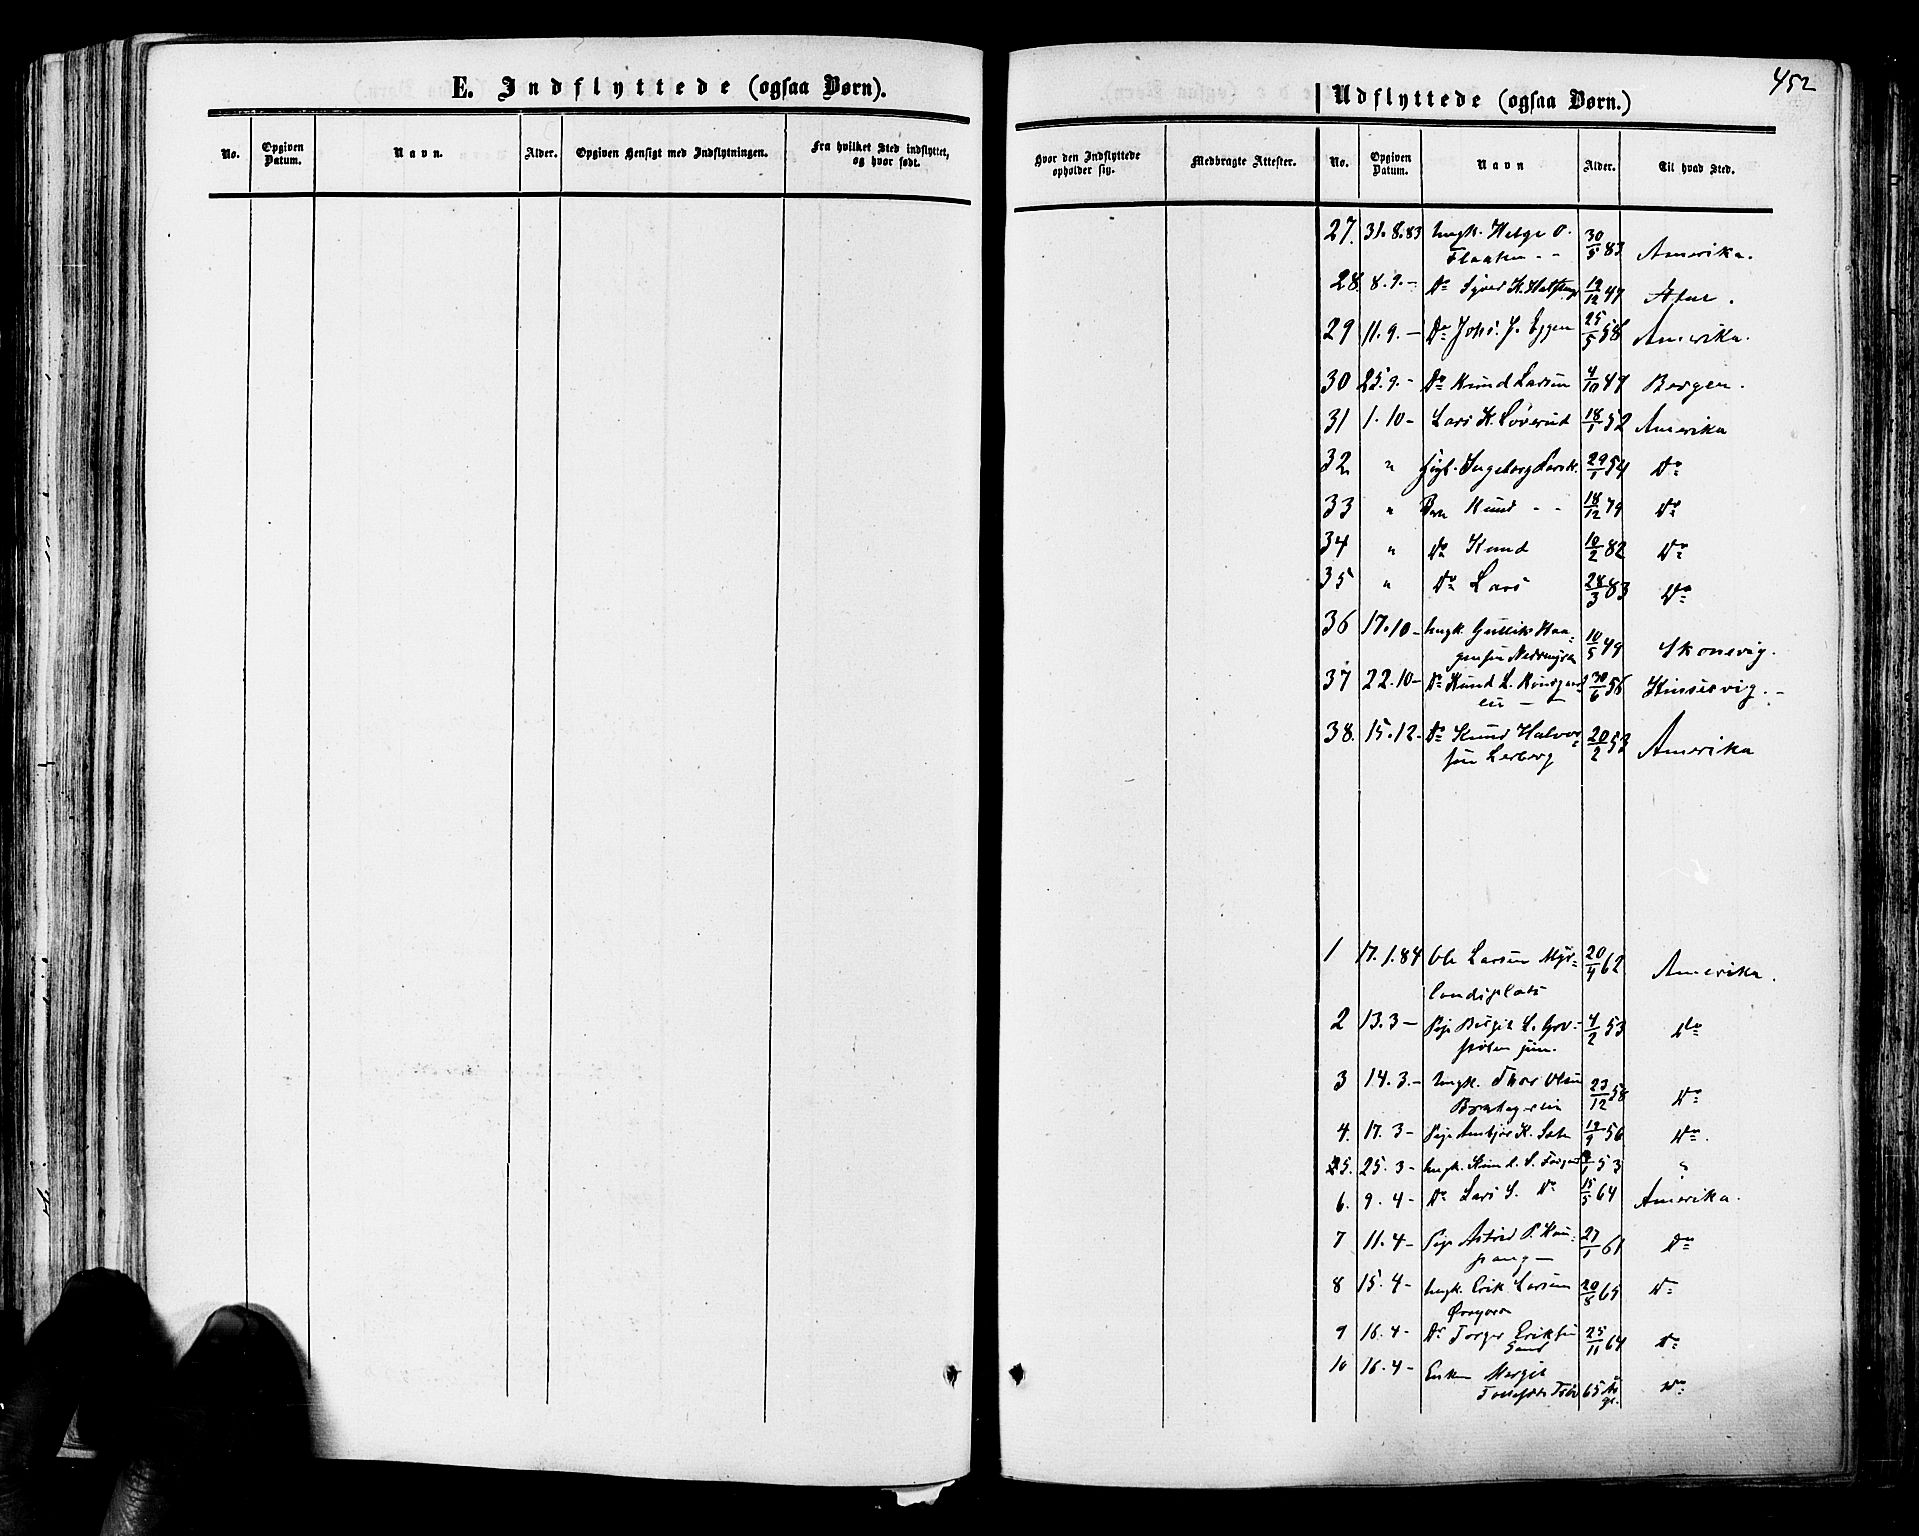 452
E. Indflyttede (ogsaa Børn).
Udflyttede (ogsaa Børn.)
No.
Opgiven Datum.
Navn.
Alder.
Opgiven Hensigt med Indflytningen.
Fra hvilket Sted indflyttet, og hvor født.
Hvor den Indflyttede opholder sig.
Medbragte Attester.
No.
Opgiven Datum.
Navn
Alder.
Til hvad Sted.
27. 31.8.83 Ungk. Helge O. 30/5 83 Amerika.
Flaaten - -
28 8.9.- Do Syver K. 19/12 47
29 11.9.- Do Johs. J. Eggen 25/5 58 Amerika.
30 25.9.- Do Knud Larsen 4/10 47 Bergen.
31 1.10- Lars K. Løverud 18/1 52 Amerika
32 " Ingeborg Larsd. 29/1 54 Do
33 " Brn Knud - - 18/12 79 Do
34 " Do Knud 10/2 82 Do
35 " Do Lars 28/3 83 Do
36 17.10- Ungk. Gullik Haa- 10/5 49 Skonevig.
gensen
37 22.10- Do Knud L. 30/6 56 Kinservig.-
38. 15.12- Do Knud Halvor- 20/2 53 Amerika
sen Lerberg
1 17.1.84 Ole Larsen Myr- 20/4 62 Amerika.
landsplads
2 13.3- Pige Birgit L. 4/2 53 Do
3 14.3.- Ungk. Thor Olsen 23/12 58 Do
4. 17.3- Pige K. 19/9 56 Do.
5. 25.3- Ungk. Knud L. 53 "
6. 9.4- Do Lars L. Do 15/5 64 Amerika.
7 11.4- Pige Astrid P. Kau- 27/1 61 Do
pang -
8 15.4- Ungk. Erik Larsen 20/8 65 Do
9 16.4- Do Torger Eriksen 25/11 64 Do
Sand
10 16.4- Enke Margit 65 Do